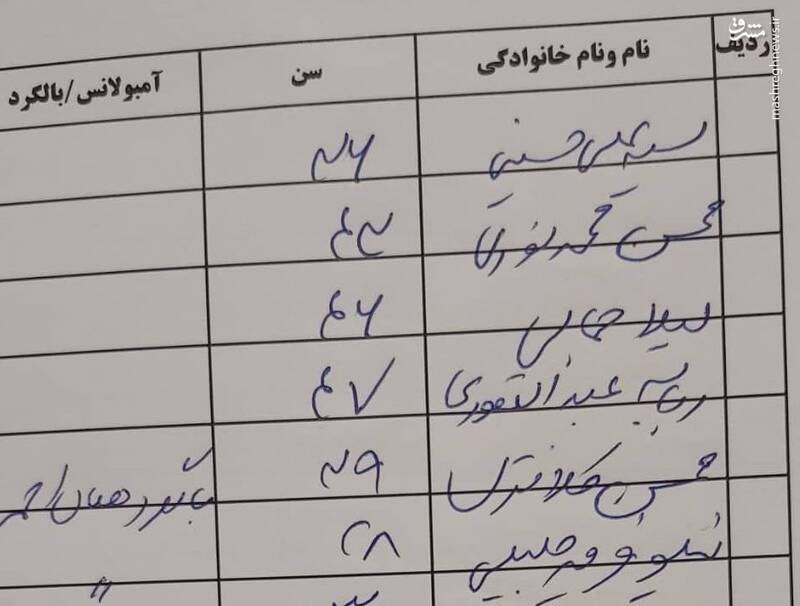 ردیف نام ونام خانوادگی سن آمبولانس/بالگرد
سید علی حسینی ۳۶
محسن محمد نوری ۴۳
لیلا جمالی ۴۶
ریحانه عبدالغفوری ۴۷
محسن ۳۹ بالگرد هلال احمر
۲۸ 〃
مشرق
mashreghnews.ir